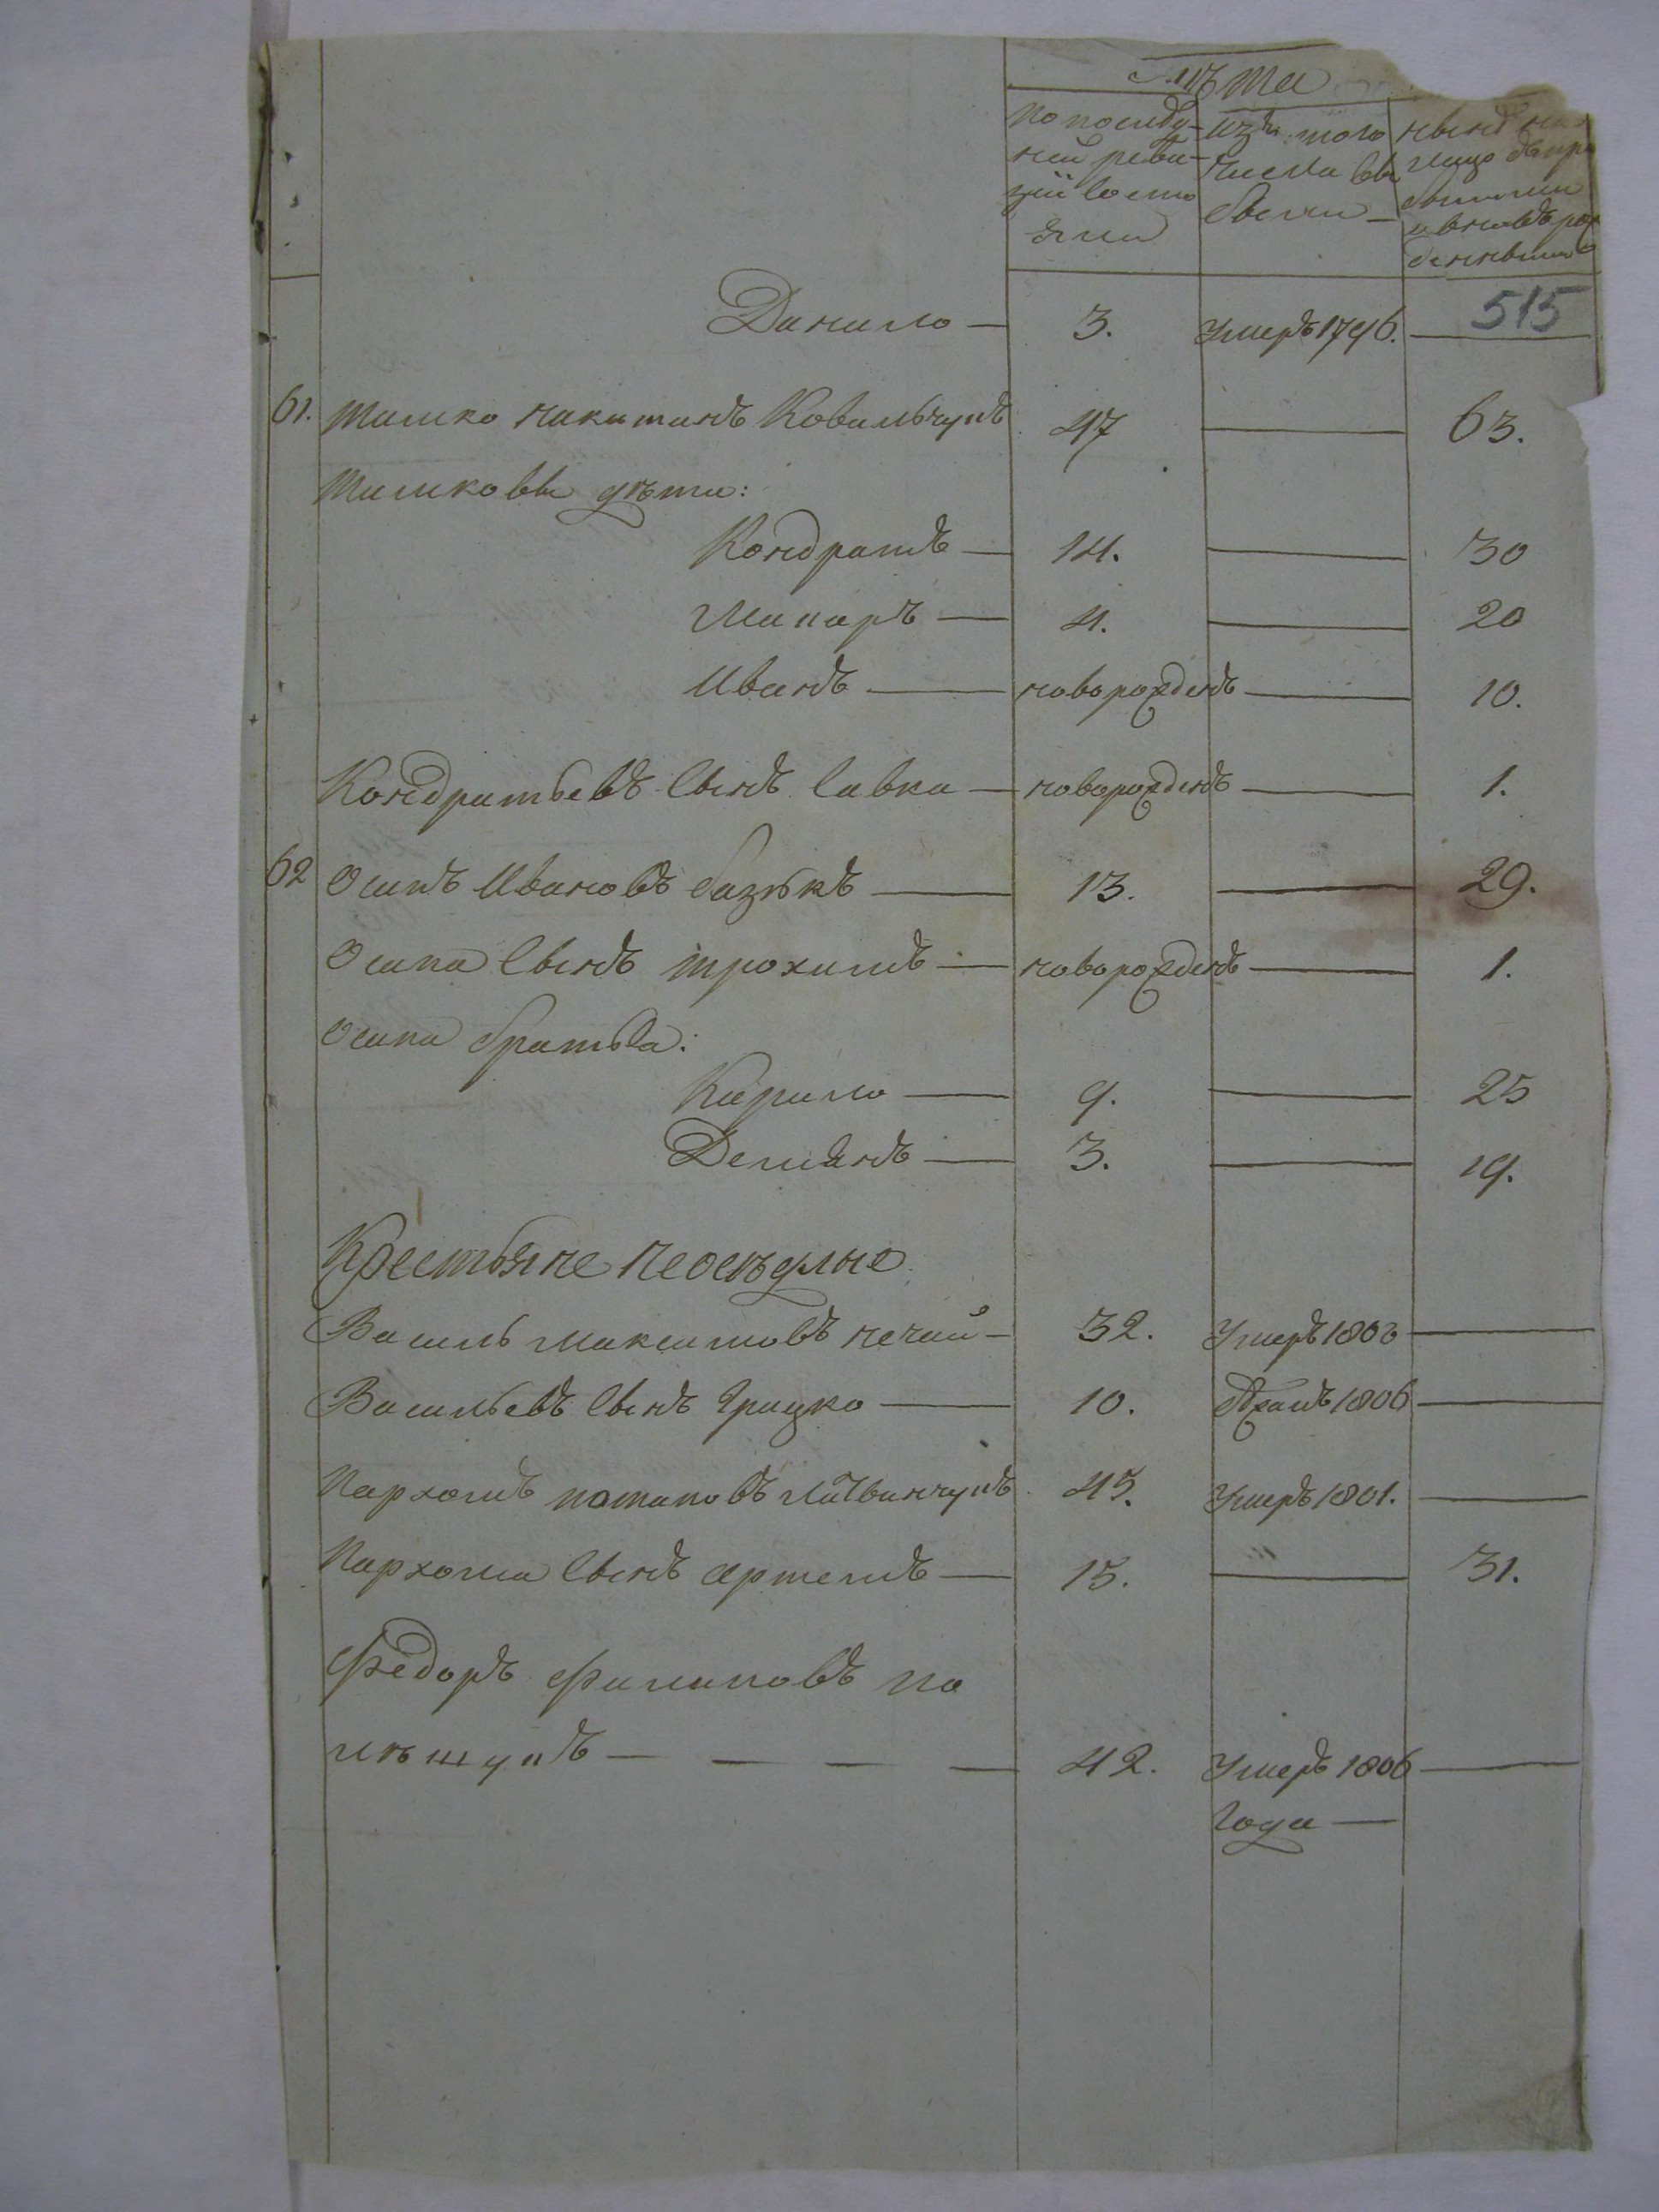 Лѣта
по послѣд-
ней реви-
зіи состо
яли
изъ того
числа вы
были
нынѣ на
лицо съ при
былыми
и вновь ро
жденными
515
Данило — 3. умеръ 1796. —
61. Тимко никитинъ Ковальчукъ 47 — 63.
Тимковы дѣти:
Кондратъ — 14. — 30
Макаръ — 4. — 20
Иванъ — новорожденъ — 10.
Кондратьевъ сынъ савка — новорожденъ — 1.
62 Осипъ Ивановъ базѣкъ — 13. — 29.
Осипа сынъ трохимъ — новорожденъ — 1.
Осипа братья:
Кирило — 9. — 25
Демянъ — 3. — 19.
Крестьяне неосѣдлые
Василь максимовъ нечай — 32. умеръ 1806 —
Васильевъ сынъ Грицко — 10. бѣжалъ 1806 —
Пархомъ потаповъ литвинчукъ 45. умеръ 1801. —
Пархома сынъ артемъ — 15. — 31.
Федоръ филиповъ по
лѣщукъ — — — — 42. умеръ 1806 —
года —